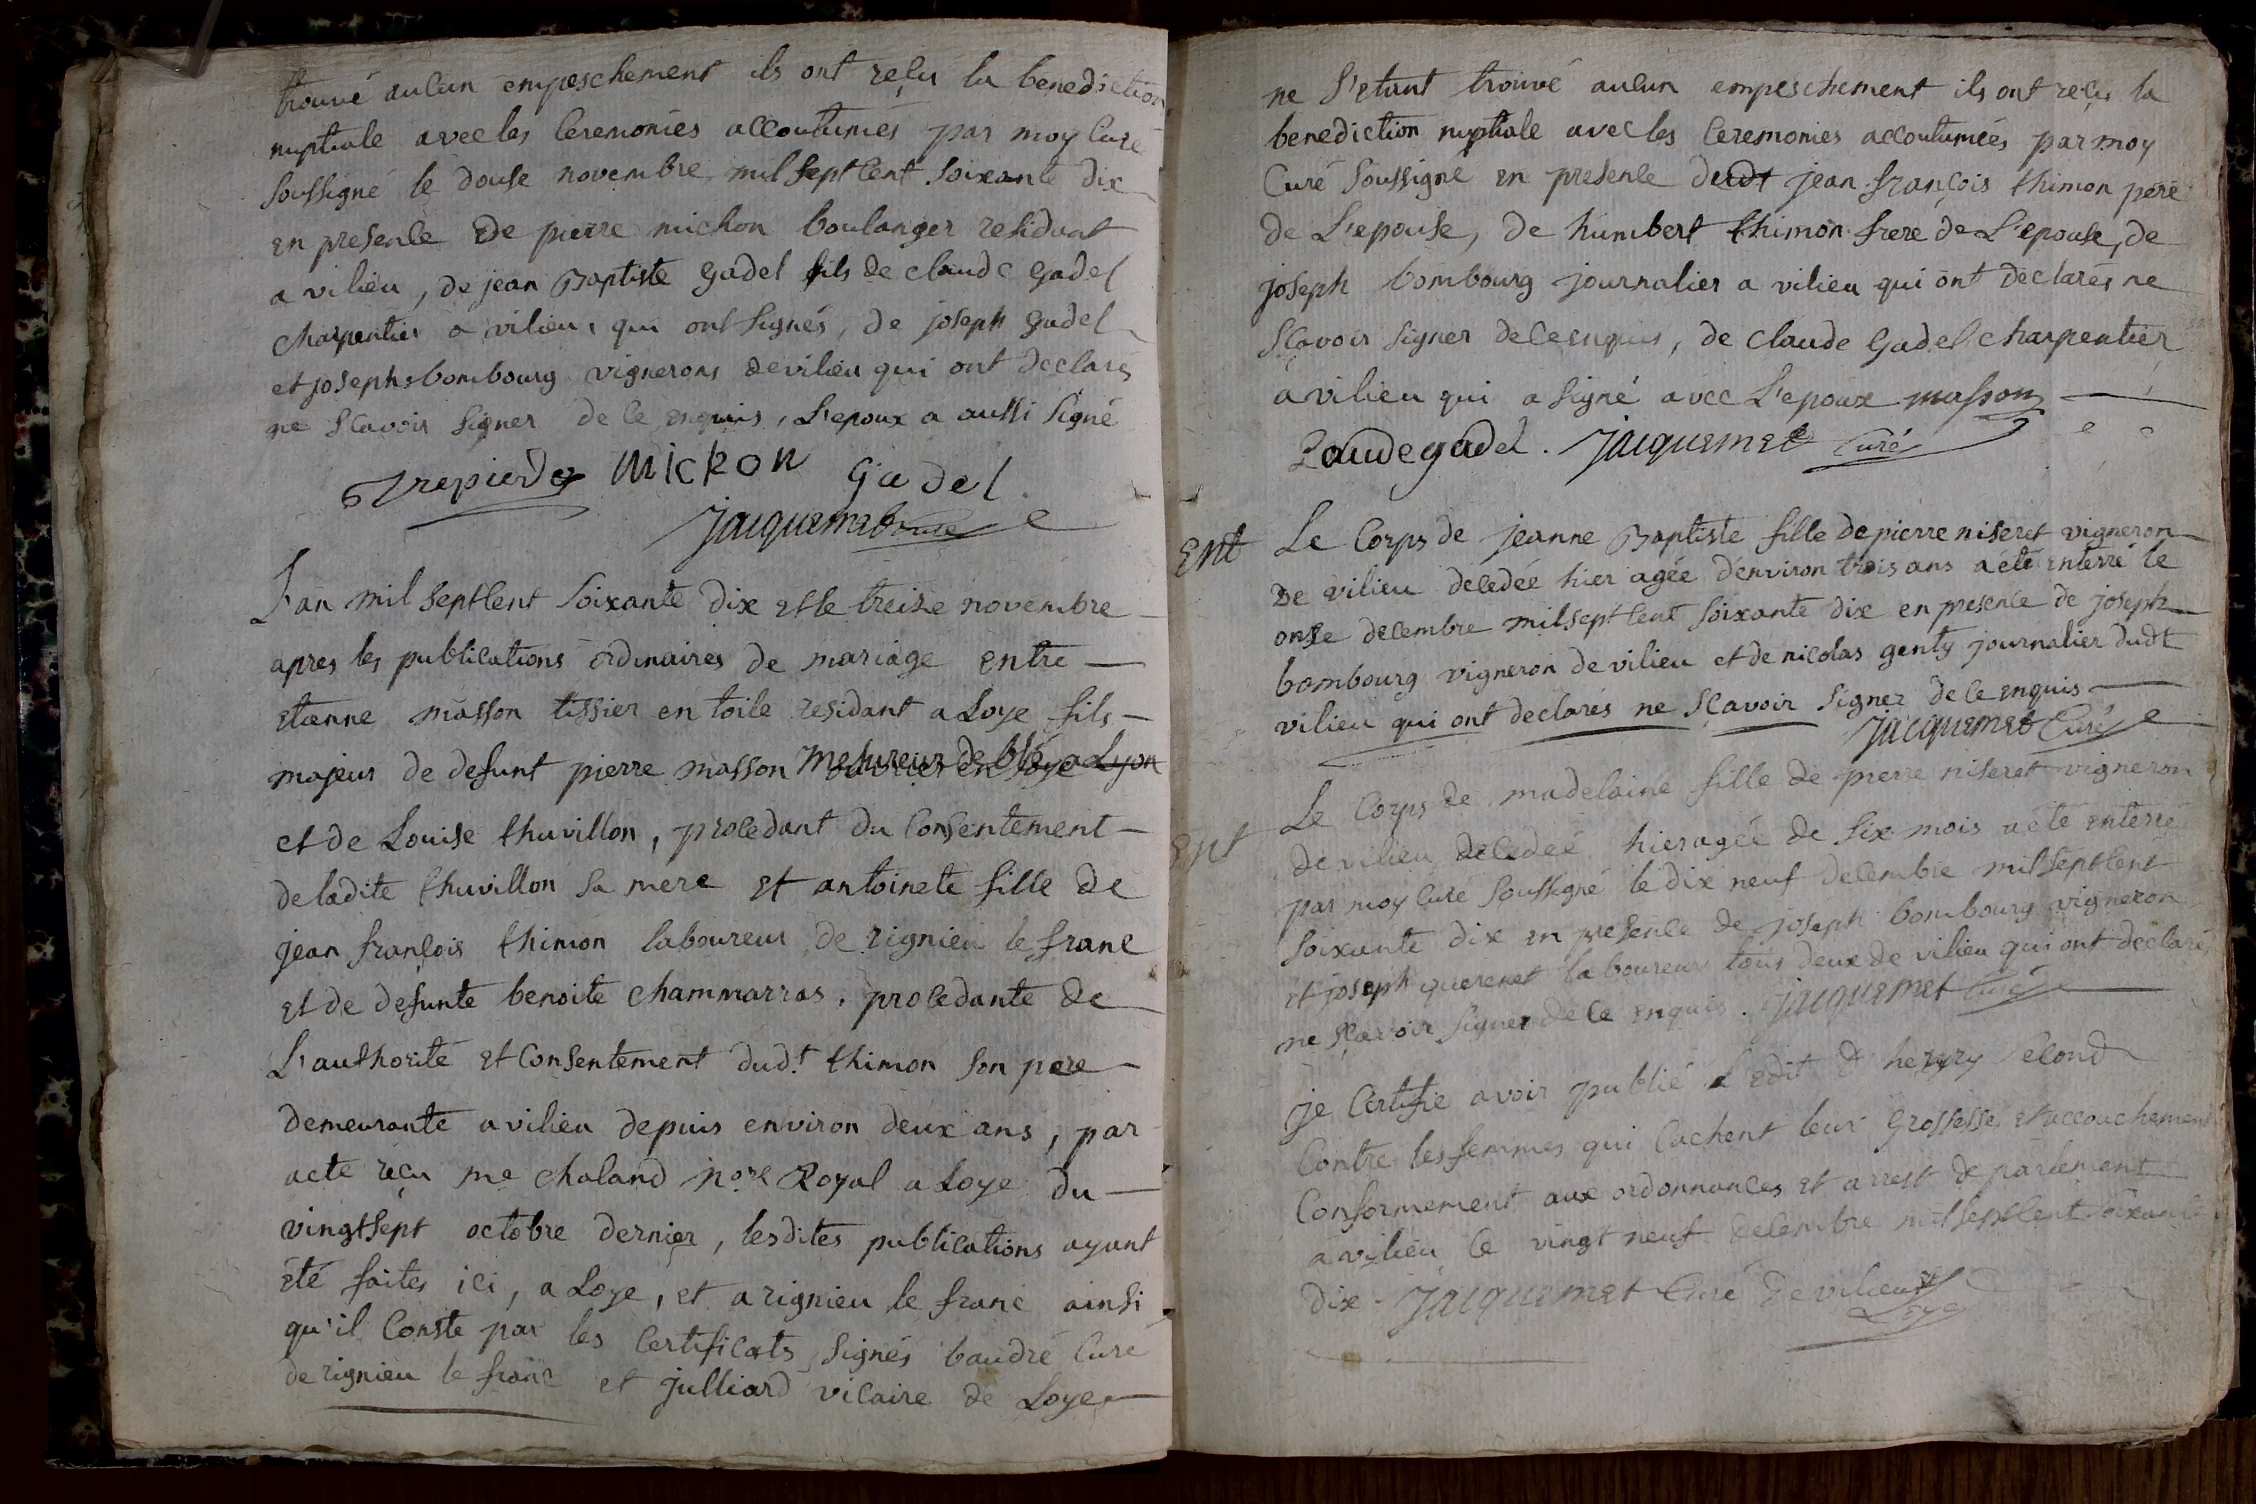 trouvé aucun empeschement ils ont reçu la benediction
nuptiale avec les Ceremonies accoutumés par moy Curé
soussigné le douse novembre mil sept cent soixante dix
en presence de pierre michon boulanger residant
a vilieu, de jean Baptiste gadel fils de claude gadel
charpentier a vilieu, qui ont signés, de joseph gadel
et joseph bombourg vignerons de vilieu qui ont declarés
ne sçavoir signer de ce enquis, L'epoux a aussi signé
michon gadel
jacquemet Curé
L'an mil sept cent soixante dix et le treise novembre
apres les publications ordinaires de mariage entre
etienne masson tissier en toile residant a Loye fils
majeur de defunt pierre masson mesureur de blé a Lyon
et de Louise thuvillon, procedant du consentement
de ladite thuvillon sa mere et antoinete fille de
jean françois thimon laboureur de rignieu le franc
et de defunte benoite chammarras, procedante de
L'authorité et consentement dudt thimon son pere
demeurante a vilieu depuis environ deux ans, par
acte reçu me chaland nore Royal a Loye du
vingt sept octobre dernier, lesdites publications ayant
été faites ici, a Loye, et a rignieu le franc ainsi
qu'il Conste par les Certificats signés baudré Curé
de rignieu le franc et julliard vicaire de Loye
ne s'etant trouvé aucun empeschement ils ont reçu la
benediction nuptiale avec les Ceremonies accoutumées par moy
Curé soussigné en presence dudt jean françois thimon pere
de L'epouse, de humbert thimon frere de L'epouse, de
joseph bombourg journalier a vilieu qui ont declarés ne
sçavoir signer de ce enquis, de claude gadel charpentier
a vilieu qui a signé avec L'epoux masson
Claude gadel. jacquemet Curé
Ent Le Corps de jeanne Baptiste fille de pierre niseret vigneron
de vilieu decedée hier agée d'environ trois ans a été enterré le
onse decembre mil sept cent soixante dix en presence de joseph
bombourg vigneron de vilieu et de nicolas genty journalier dudt
vilieu qui ont declarés ne sçavoir signer de ce enquis
jacquemet Curé
Ent Le Corps de madelaine fille de pierre niseret vigneron
de vilieu decedeé hier agée de six mois a été enterré
par moy Curé soussigné le dix neuf decembre mil sept cent
soixante dix en presence de joseph bombourg vigneron
et joseph querenet laboureur tous deux de vilieu qui ont declarés
ne sçavoir signer de ce enquis. jacquemet Curé
je Certifie avoir publié l'edit d henry second
Contre les femmes qui cachent leur grossesse et accouchement
Conformement aux ordonnances et arrest de parlement
a vilieu ce vingt neuf decembre mil sept cent soixante
dix. jacquemet Curé de vilieu et
Loye